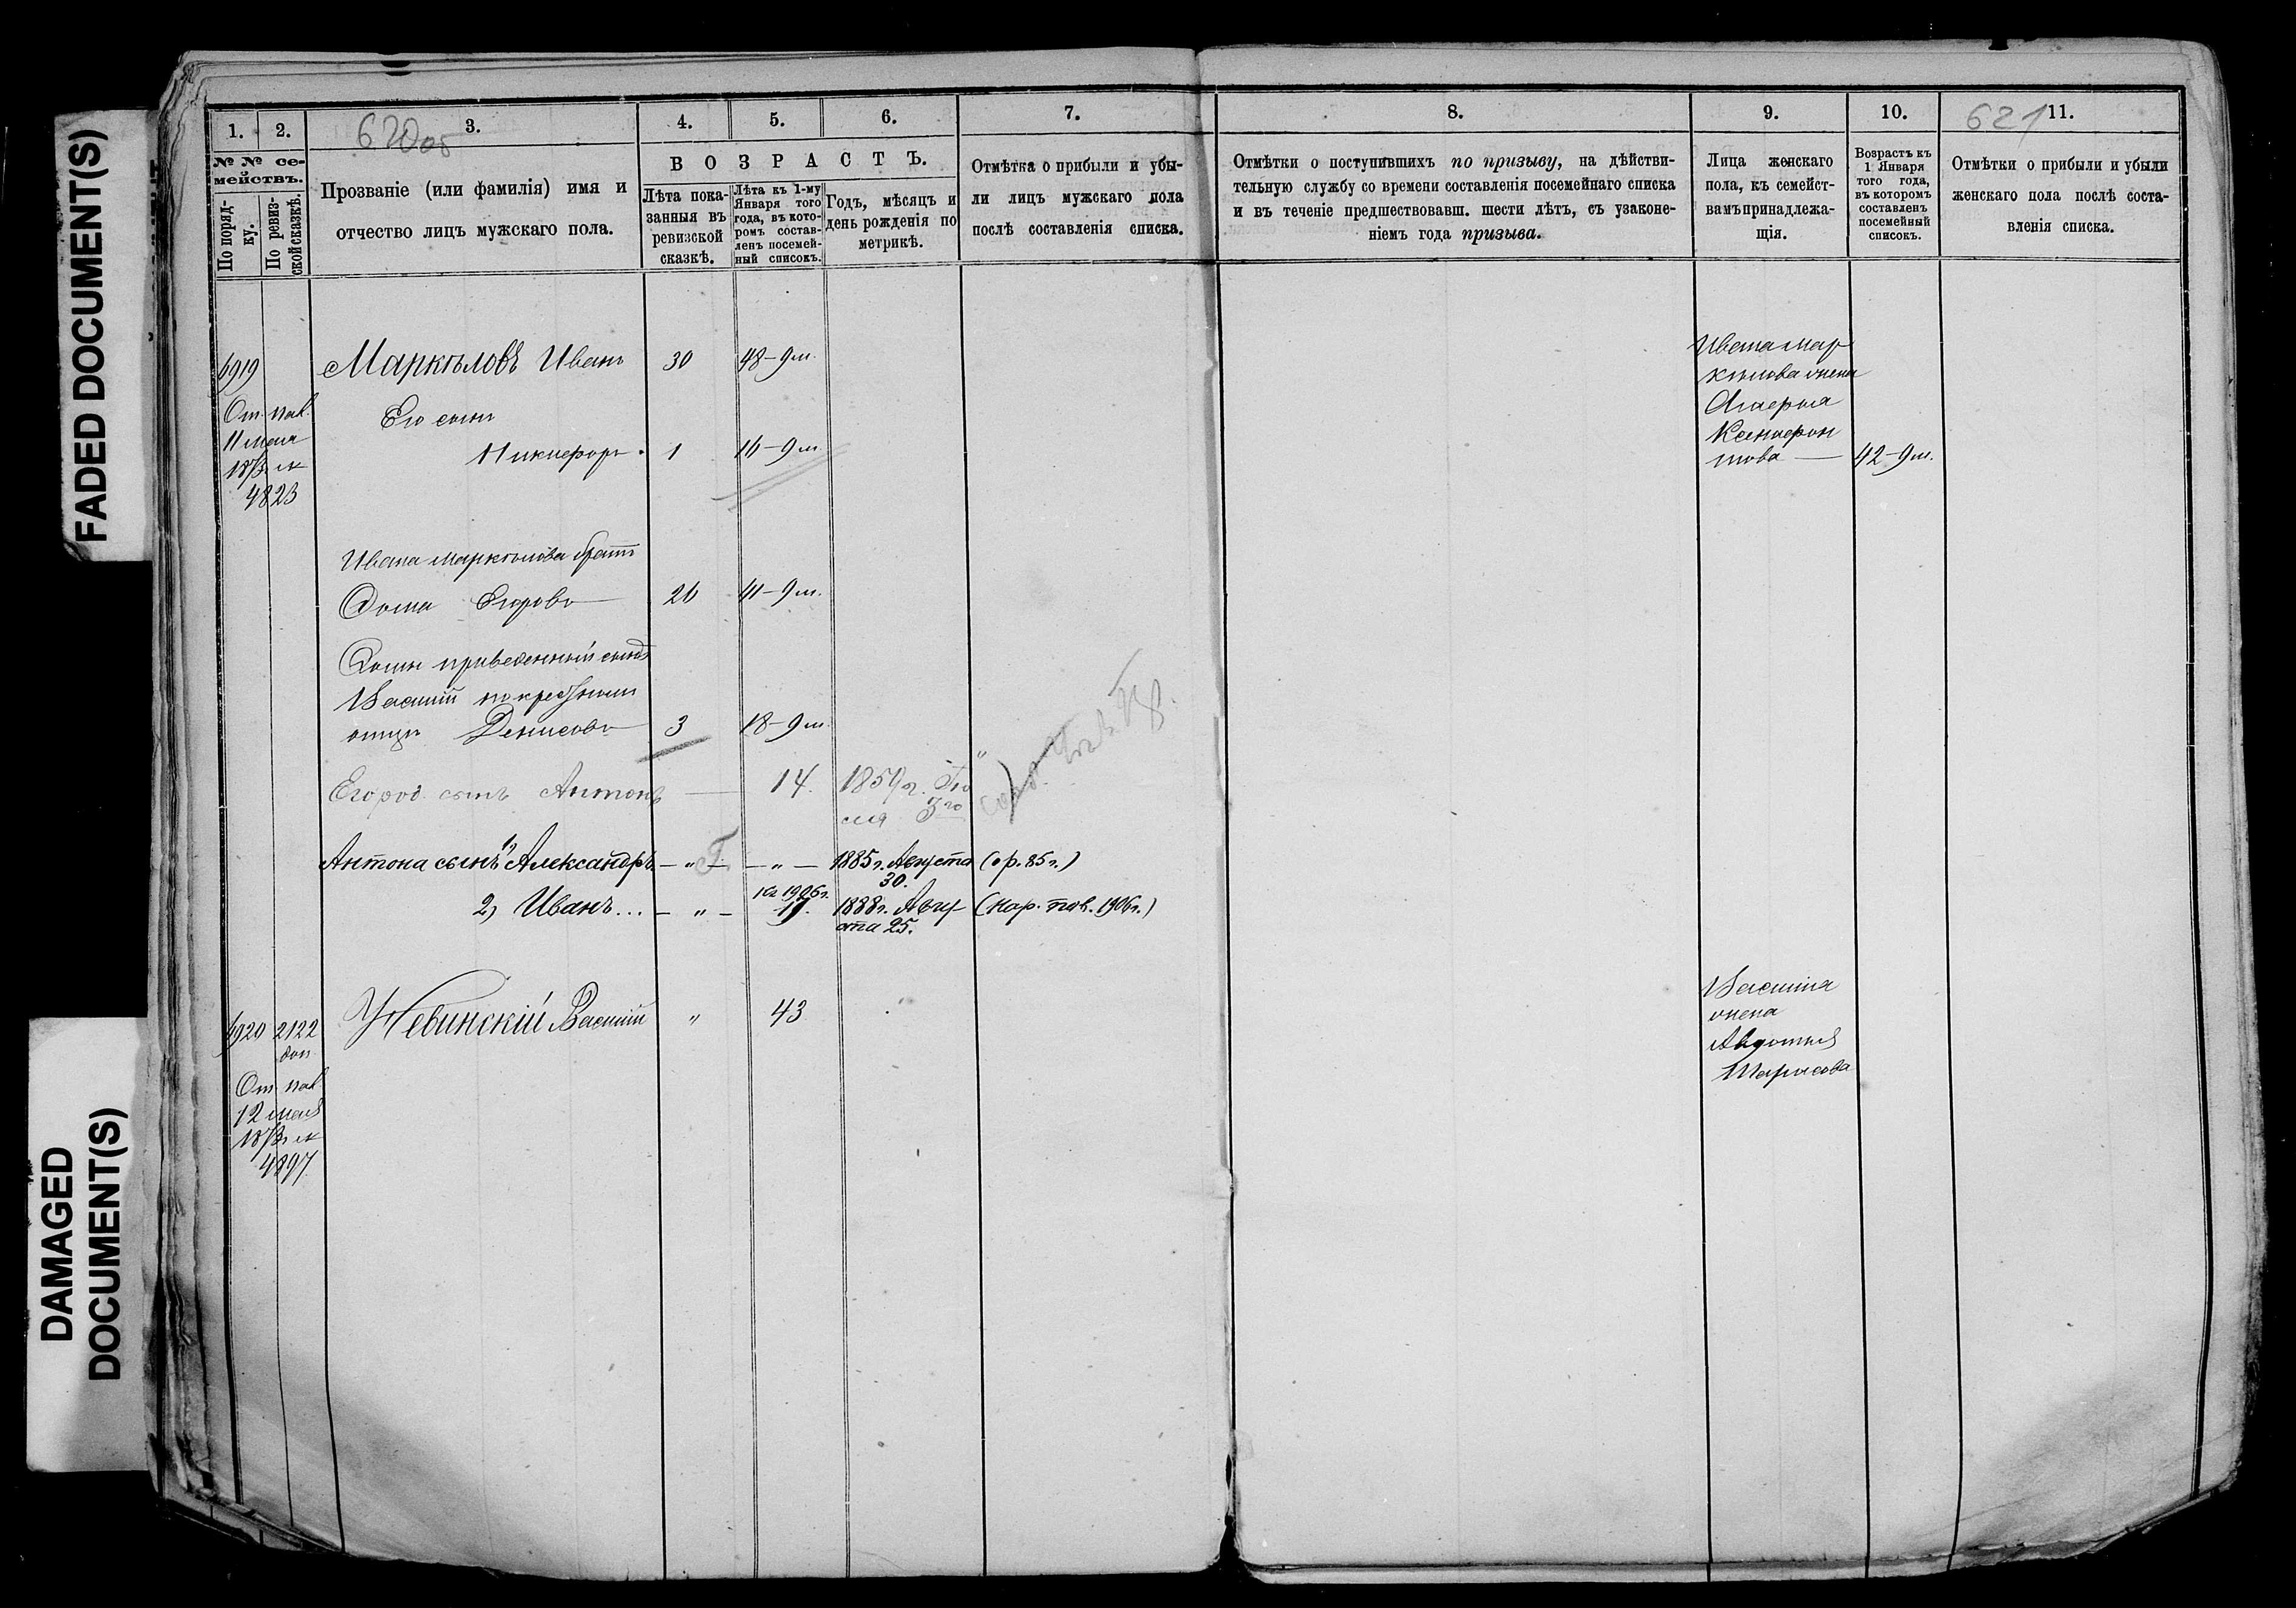 FADED DOCUMENT(S)
DAMAGED
DOCUMENT(S)
1.
2.
3.
620об
4.
5.
6.
7.
8.
9.
10.
11.
621
№ № се-
мействъ.
По поряд-
ку.
По ревиз-
ской сказкѣ.
Прозваніе (или фамилія) имя и
отчество лицъ мужскаго пола.
ВОЗРАСТЪ.
Лѣта пока-
занныя въ
ревизской
сказкѣ.
Лѣта къ 1-му
Января того
года, въ кото-
ромъ состав-
ленъ посемей-
ный списокъ.
Годъ, мѣсяцъ и
день рожденія по
метрикѣ.
Отмѣтка о прибыли и убы-
ли лицъ мужскаго пола
послѣ составленія списка.
Отмѣтки о поступившихъ по призыву, на дѣйстви-
тельную службу со времени составленія посемейнаго списка
и въ теченіе предшествовавш. шести лѣтъ, съ узаконе-
ніемъ года призыва.
Лица женскаго
пола, къ семейст-
вамъ принадлежа-
щія.
Возрастъ къ
1 Января
того года,
въ которомъ
составленъ
посемейный
списокъ.
Отмѣтки о прибыли и убыли
женскаго пола послѣ соста-
вленія списка.
6919
От. пов.
11 мая
1873 г. №
4823
Маркѣловъ Иванъ 30 48–9 м.
Его сынъ
Никифоръ 1 16–9 м
Ивана Маркѣлова братъ
Фома Егоровъ 26 41–9 м.
Фомы приведенный сынъ
Василій по крестному
отцу Денисовъ 3 18–9 м.
Егоров. сынъ Антонъ — 14. 1859 г. Iю
ля 3го
Антона сынъ 1) Александръ — „ — — „ — 1885 г. Августа (ор. 85 г.)
30.
2) Иванъ... — „ — къ 1906 г. 17. 1888 г. Авгу (Кар. пов. 1906 г.)
ста 25.
Ивана Мар
кѣлова жена
Агафья
Ксенофон
това — 42–9 м.
6920 2122
доп
От. пов.
12 мая
1873 г. №
4897.
Невинскій Василій „ 43
Василія
жена
Авдотья
Тарасова